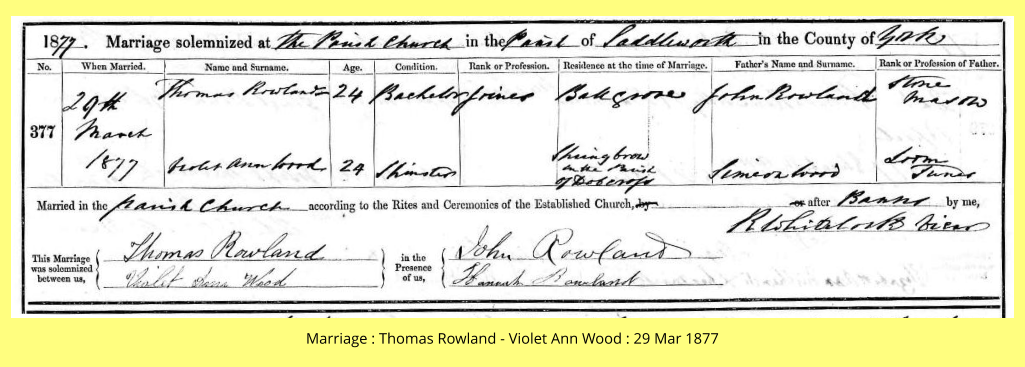 1877. Marriage solemnized at The Parish Church in the Parish of Saddleworth in the County of York
No. When Married. Name and Surname. Age. Condition. Rank or Profession. Residence at the time of Marriage. Father's Name and Surname. Rank or Profession of Father.
377
29th March 1877
Thomas Rowland 24 Bachelor Joiner John Rowland Stone Mason
Violet Ann Wood 24 Spinster Springbrow in the Parish of Dobcross Simeon Wood Loom Tuner
Married in the Parish Church according to the Rites and Ceremonies of the Established Church, by or after Banns by me,
R Whitelock Vicar
This Marriage was solemnized between us,
Thomas Rowland
Violet Ann Wood
in the Presence of us,
John Rowland
Hannah Rowland
Marriage : Thomas Rowland - Violet Ann Wood : 29 Mar 1877